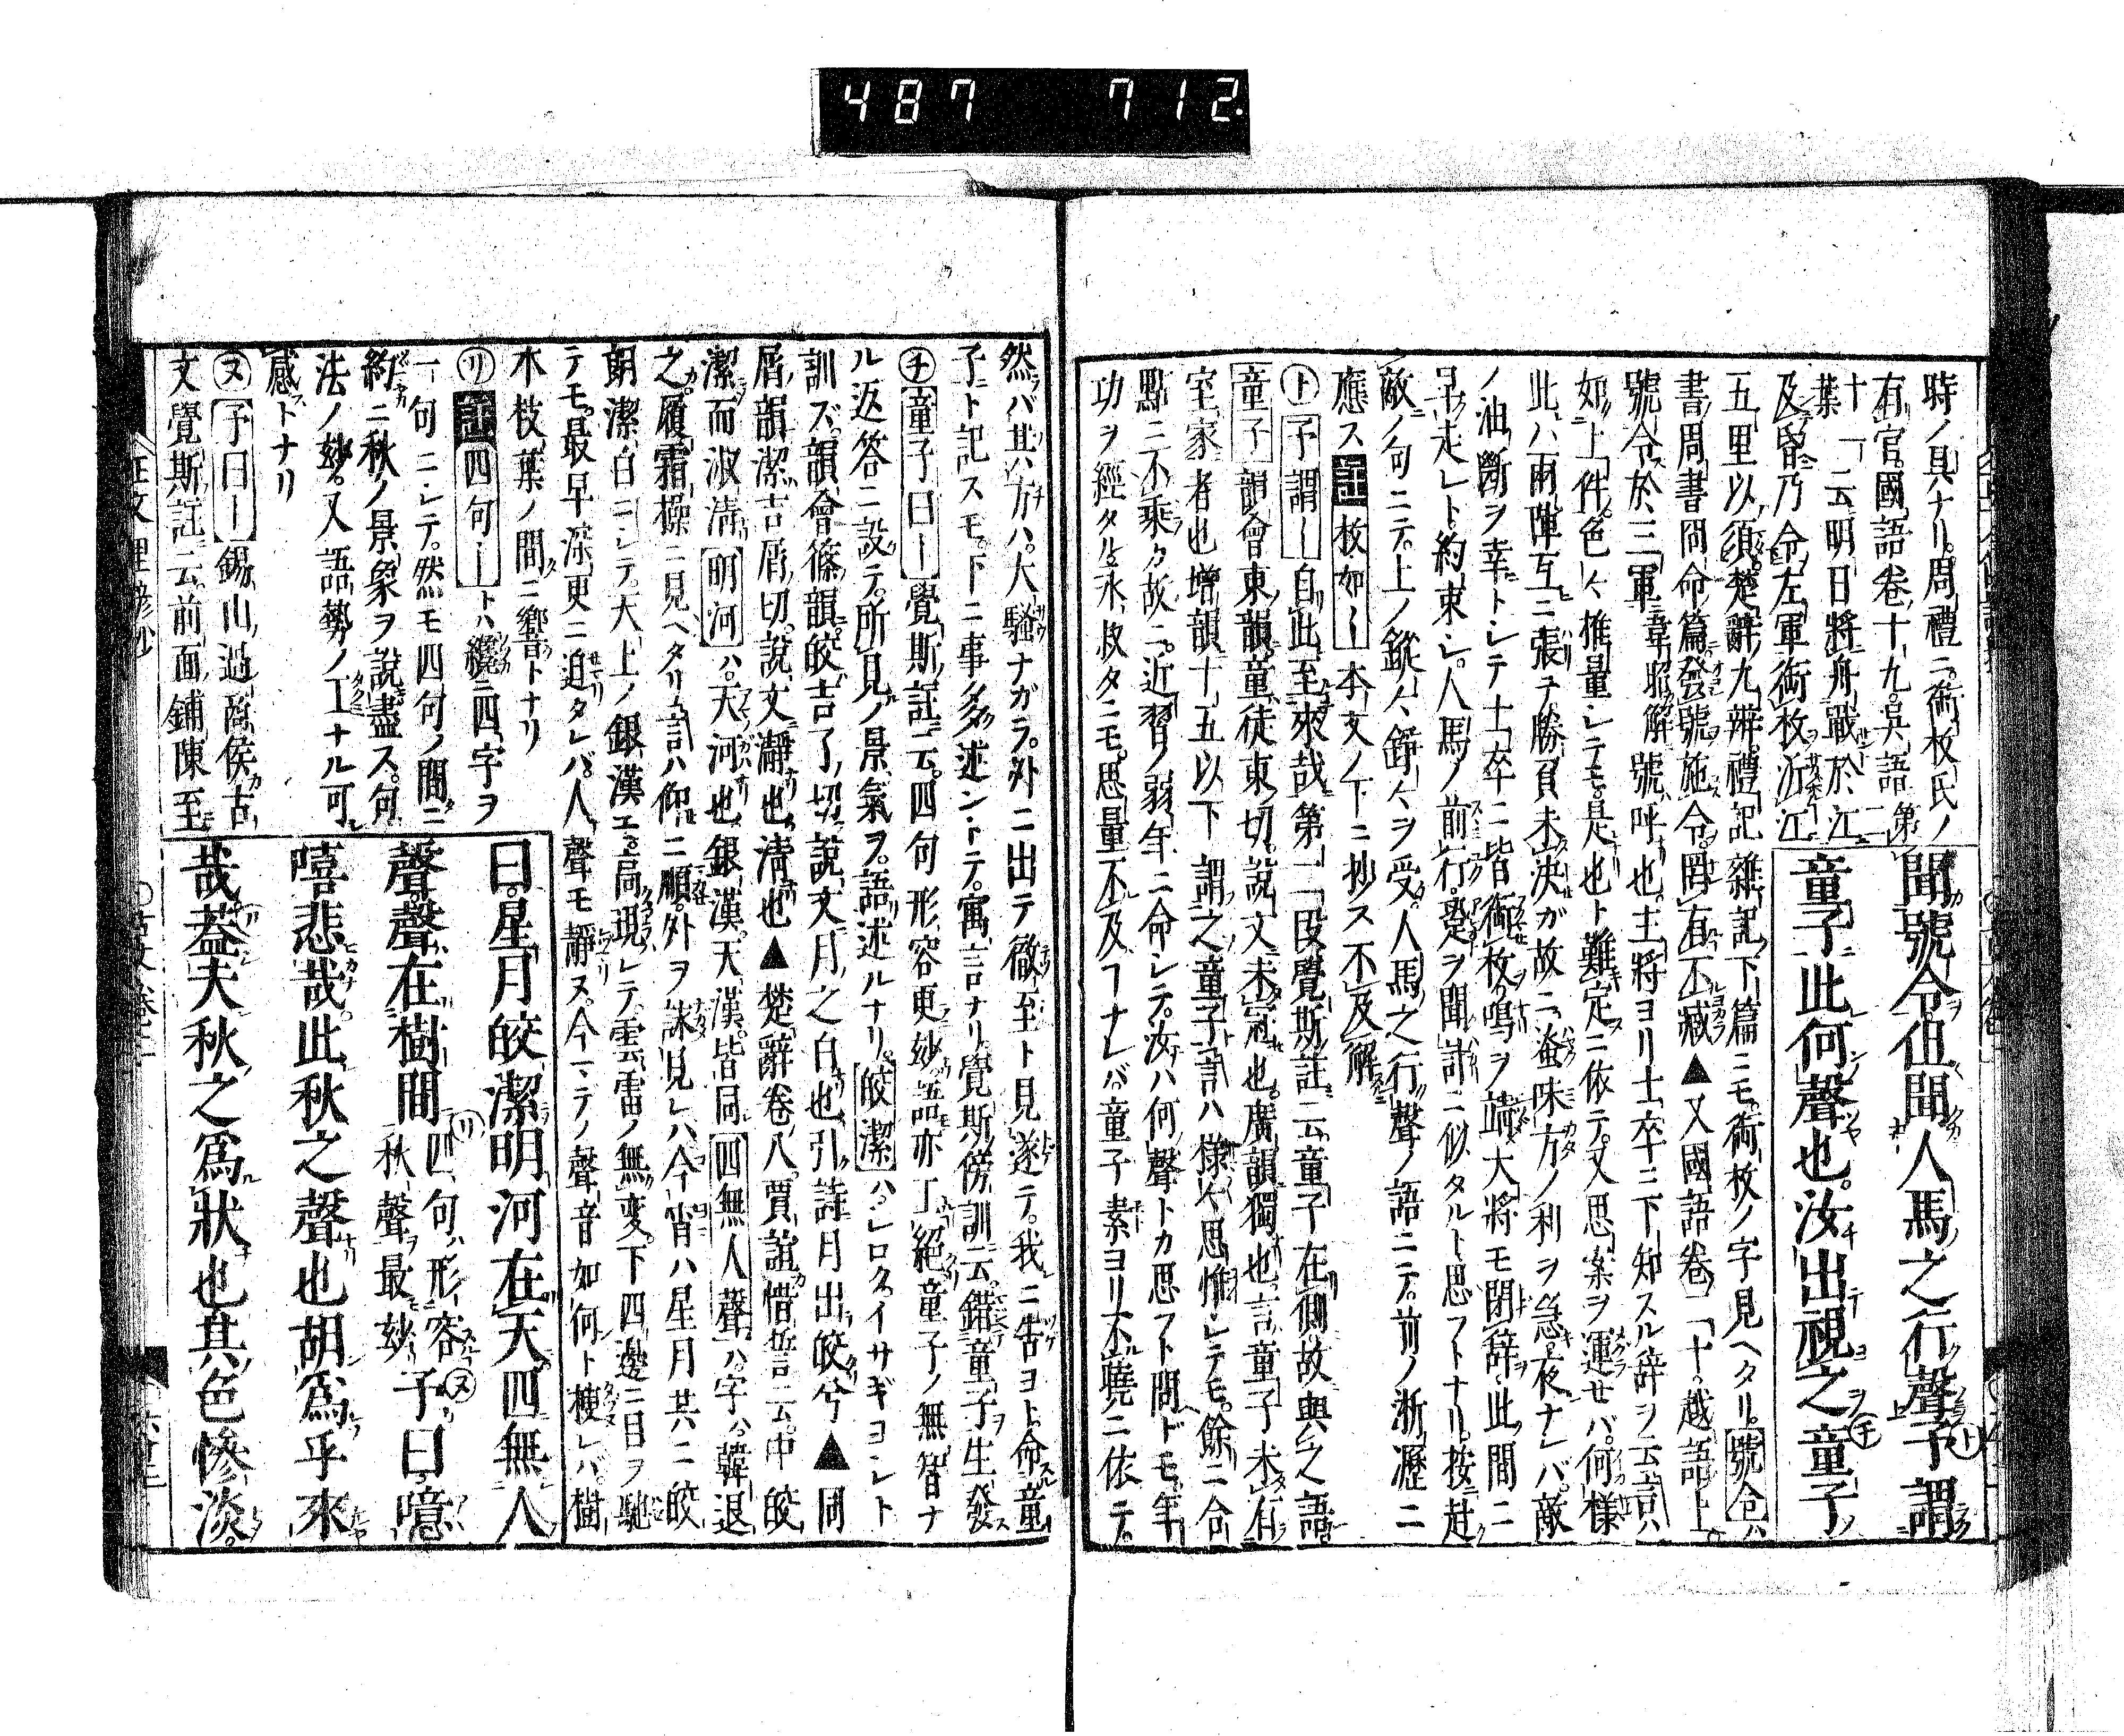 487 712.
時ノ具ナリ。周禮ニ。銜枚氏ノ
有官。國語卷十九。吳語第
十一云明日將舟戰於江
及昏乃令左軍銜枚泝江
五里以須楚辭九辨。禮記雜記下篇ニモ。銜枚ノ字見ヘタリ。號令ハ
書周書冏命篇發號施令。罔有不臧▲又國語卷二十。越語上
號令於三軍韋昭解號呼也。主將ヨリ士卒ニ下知スル辞ヲ云言ハ
如上件色々推量シテモ。是也ト難定ニ依テ。又思案ヲ運セバ。何樣
此ハ兩陣互ニ張テ勝負未決ガ故ニ渰味方ノ利ヲ急。夜ナレバ。敵
ノ油斷ヲ幸トシテ士卒ニ皆銜枚鳴ヲ靖大將モ閉辞。此間ニ
早走レト約束シ。人馬ノ前行跫ヲ聞計ニ似タルト思フトナリ。按赴
敵ノ句ニテ。上ノ鏦々錚々ヲ受。人馬之行聲ノ語ニテ。前ノ淅瀝ニ
應ス註枚如ー本文ノ下ニ抄ス不及解
ト予謂ー自此至來哉第二段覺斯註云童子在側故與之語
童子韻會東韻童徒東切。說文未冠也。廣韻獨也言童子未有
室家者也增韻十五以下謂之童子言ハ樣々思惟シテモ。餘ニ合
點ニ不乘ヶ故ニ。近習ノ弱年ニ命シテ。汝ハ何聲トカ思フト問ドモ。年
功ヲ經タル。永叔タニモ。思量不及フナレバ。童子素ヨリ不曉ニ依テ。
聞號令但聞人馬之行聲予謂
童子此何聲也。汝出視之童子
然バ其方ハ。人騷ナガラ。外ニ出テ徹至ト見遂テ。我ニ告ヨト。命童
子ト記スモ。下ニ事多述ントテ。寓言ナリ。覺斯傍訓云。錯童子生發
チ童子曰ー覺斯註云。四句形容更妙。語亦丁絕童子ノ無智ナ
ル返答ニ設テ。所見ノ景氣ヲ。語述ルナリ。皎潔ハ。シロクイサギヨシト
訓ズ。韻會篠韻皎吉了切說文月之白也引詩月出皎兮▲同
屑韻潔吉屑切。說文瀞也清也▲楚辭卷八。賈誼惜誓云。中皎
潔而淑淸明河ハ。天河也銀漢天漢。皆同四無人聲ハ。字ハ韓退
之。履霜操ニ見ヘタリ言ハ仰ニ順。外ヲ誅見レハ今宵ハ星月共ニ皎
朗潔白ニシテ。大上ノ銀漢エ。局現レテ。雲雷ノ無変。下四邊ニ目ヲ馳
テモ。最早深更ニ迫タレバ。人聲モ靜ヌ。今マテノ聲音如何ト棲レバ。樹
木枝葉ノ間ニ響トナリ
リ註四句ートハ纔ニ四字ヲ
一句ニシテ。然モ四句ノ間ニ
約ニ秋ノ景象ヲ說盡ス。句
法ノ妙。又語勢ノ工ナル可
感トナリ
ヌ予曰ー錫山過商侯古
文覺斯註云。前面鋪陳至
曰。星月皎潔明河在天。四無人
聲。聲在樹間 四句形容秋聲最妙 予曰噫
嘻悲哉。此秋之聲也胡爲乎來
哉蓋夫秋之爲狀也其色慘淡。